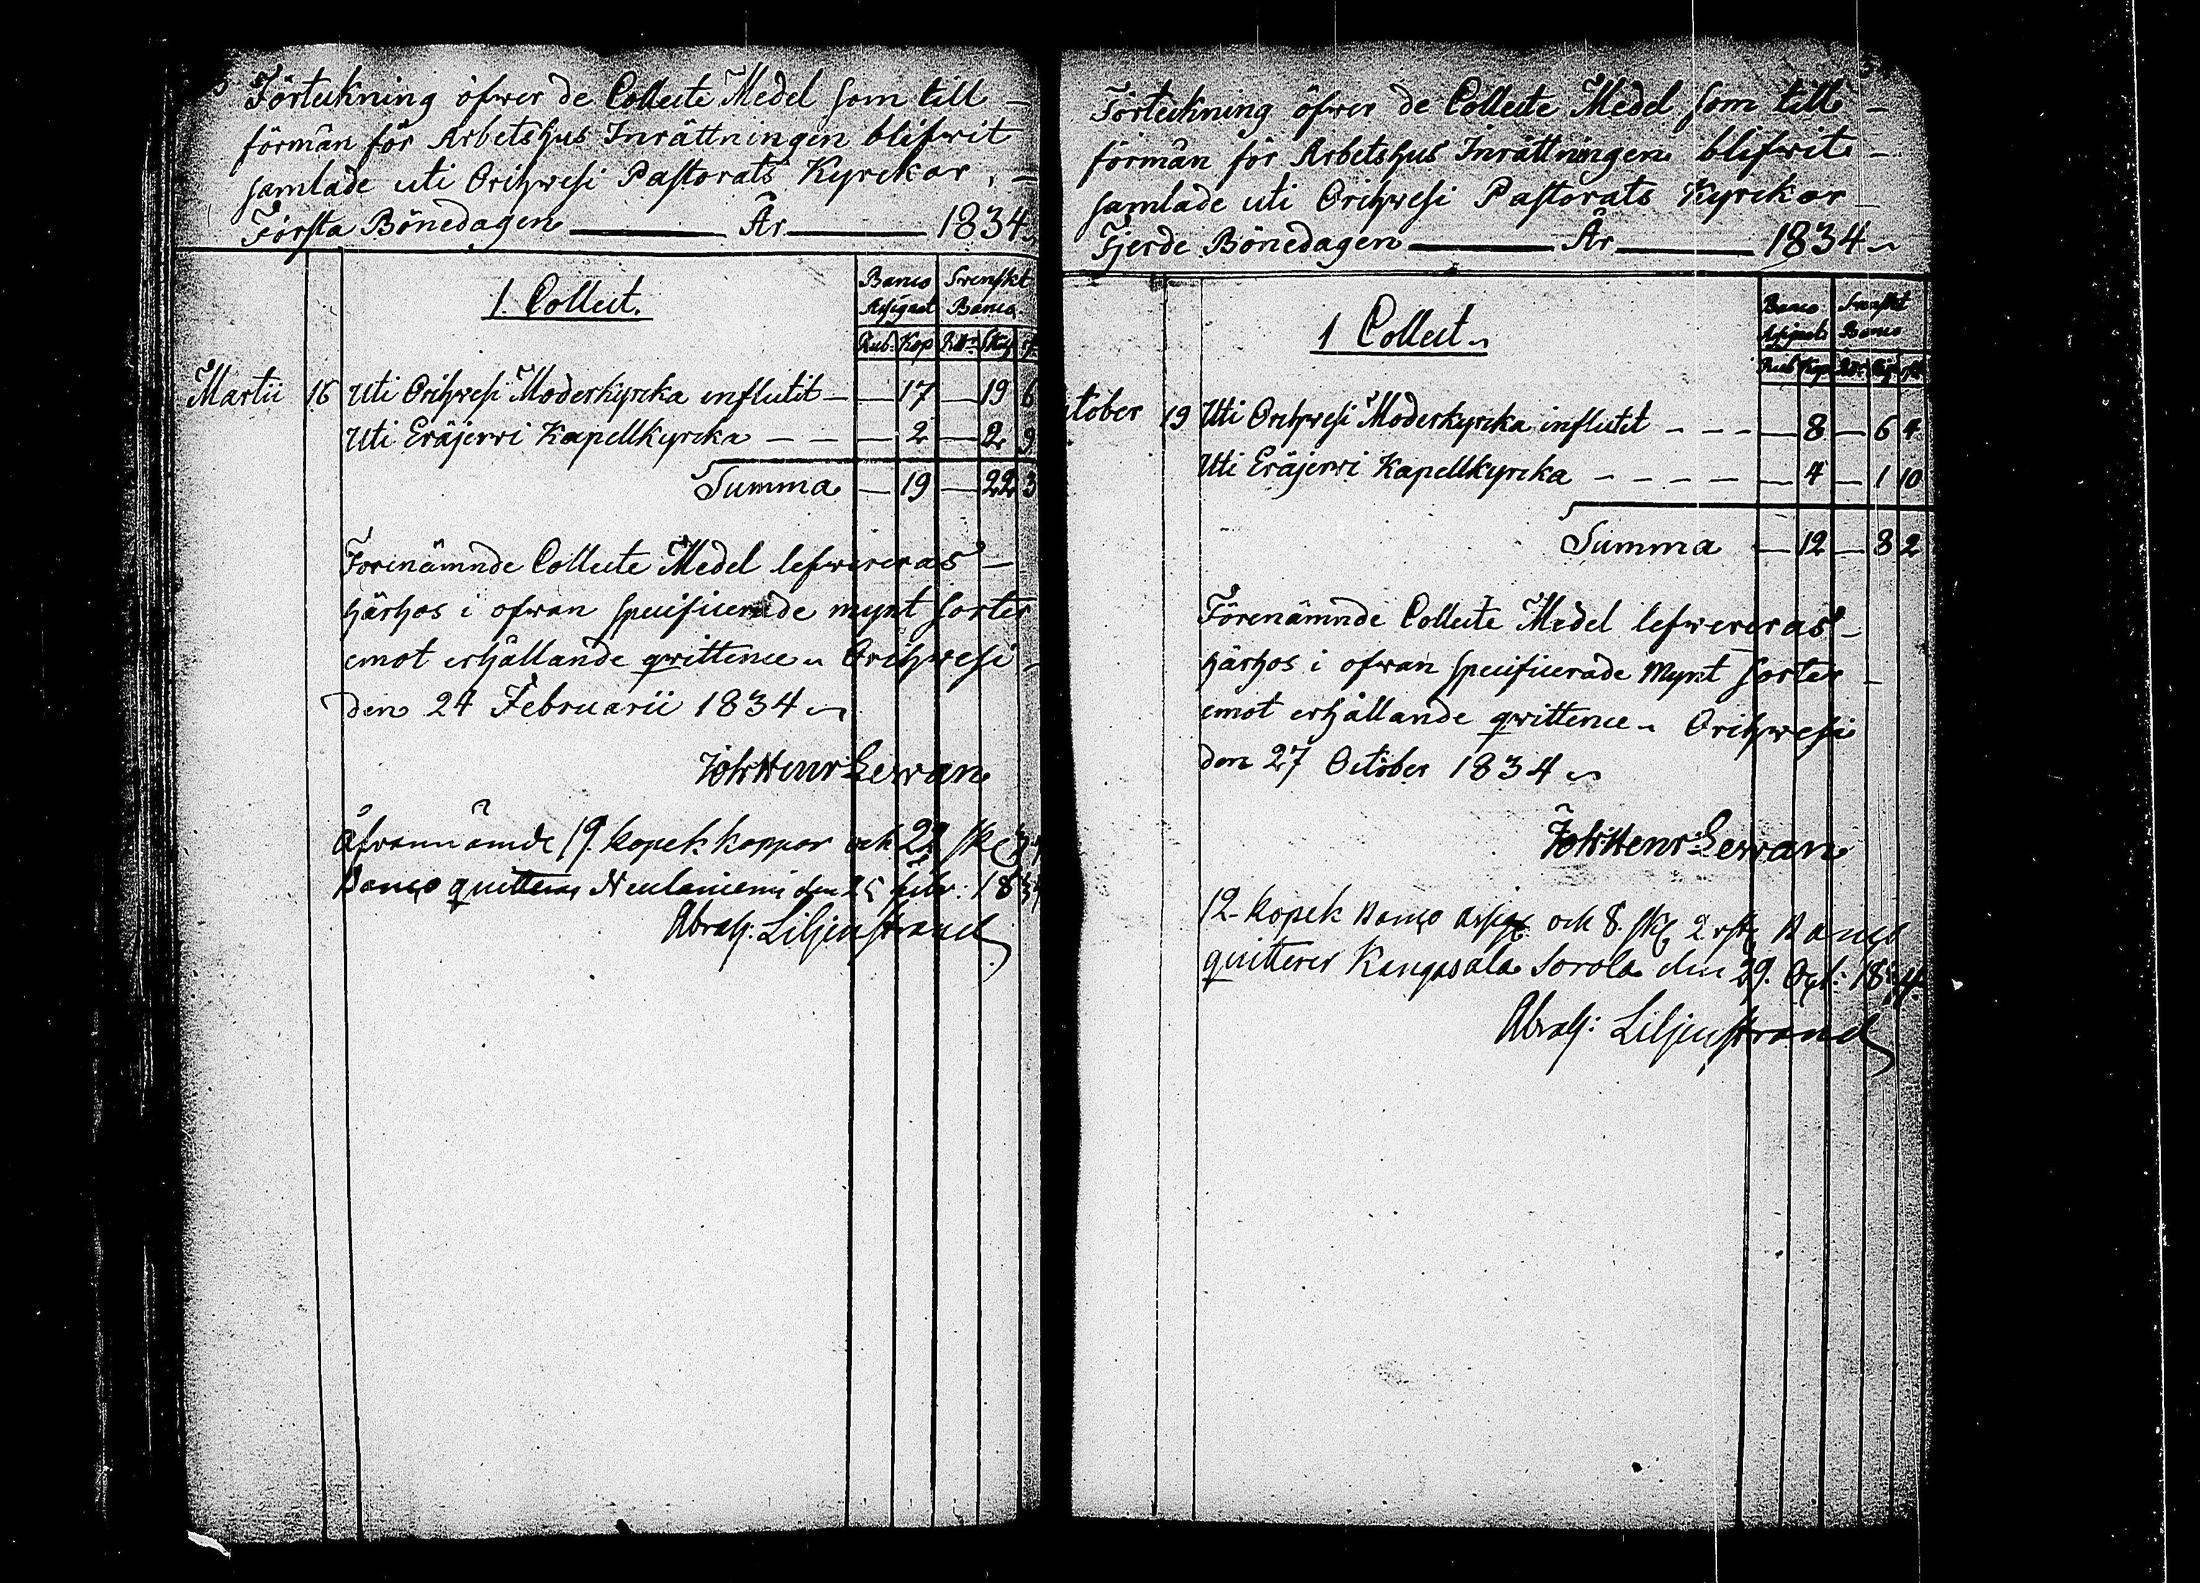 Förteckning öfwer de Collecte Medel som till –
förmån för Arbetshus Inrättningen blifwit
samlade uti Orihwesi Pastorats Kyrckor, –
Första Bönedagen ——— År ——— 1834
1 Collect.
Banco Assignat Swenskt Banco
Rub. Kop R:dr Sk: rst
Martii 16 Uti Orihwesi Moderkyrcka influtit – — 17 — 19 6
Uti Eräjerwi Kapellkyrcka – – — 2 — 2 9
Summa — 19 — 22 3
Förenämnde Collecte Medel lefwereras –
härhos i ofwan specificerade mynt sorter
emot erhållande qwittence. Orihwesi
den 24 Februarii 1834
Joh Henr Lewan
Åfvannämde 19. kopek koppar och 22 sk 3 r
Banco quitteras den 25 febr: 1834
Abrah: Liljenstrand
Förteckning öfwer de Collecte Medel som till –
förmån för Arbetshus Inrättningen blifwit –
samlade uti Orihwesi Pastorats Kyrckor
Fjerde Bönedagen ——— År ——— 1834
1 Collect
Banco Assignat Swenskt Banco
Rub Kop Rdr Sk rst
tober 19 Uti Orihwesi Moderkyrcka influtit – – – — 8 — 6 4
Uti Eräjerwi Kapellkyrcka – – – – — 4 — 1 10
Summa — 12 — 8 2
Förenämnde Collecte Medel lefwereras –
härhos i ofwan specificerade Mynt sorter –
emot erhållande qwittence. Orihwesi
den 27 October 1834
Joh Henr Lewan
12 kopek Banco assig: och 8. sk 2 rst Banco
quitterer Kangasala Sorola den 29. Oct: 1834.
Abrah: Liljenstrand